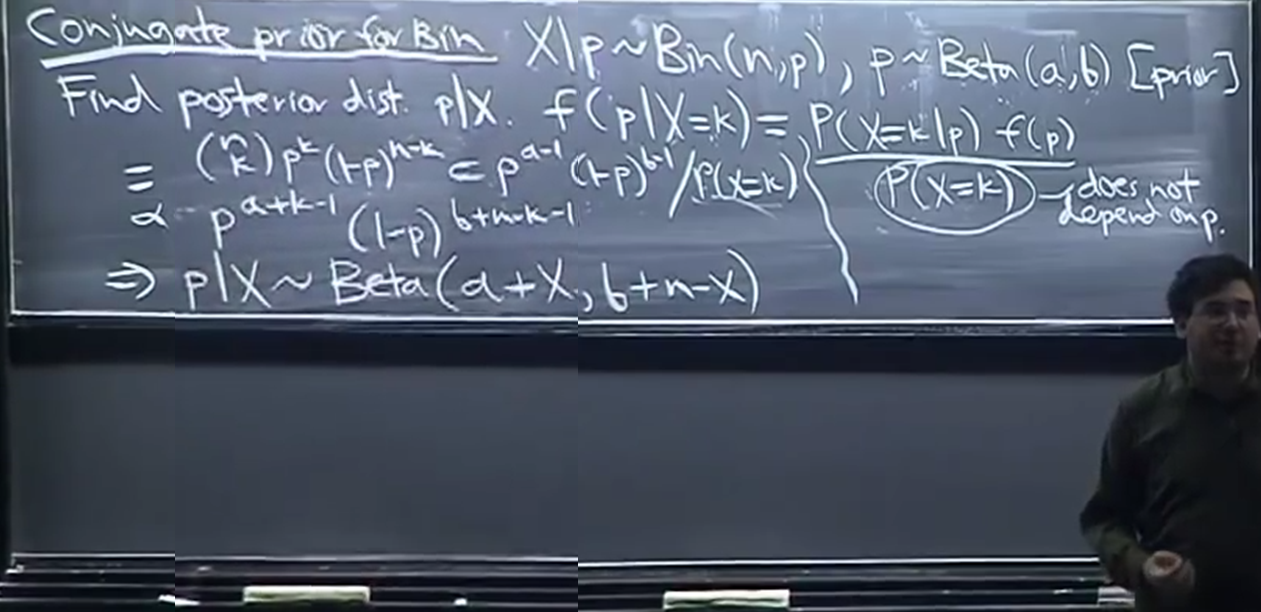 Conjugate prior for Bin X|p ~ Bin(n,p), p ~ Beta(a,b) [prior]
Find posterior dist. p|X. f(p|X=k) = P(X=k|p) f(p) / P(X=k) → does not depend on p.
= (n k) p^k (1-p)^{n-k} c p^{a-1} (1-p)^{b-1} / P(X=k)
∝ p^{a+k-1} (1-p)^{b+n-k-1}
⇒ p|X ~ Beta(a+X, b+n-X)